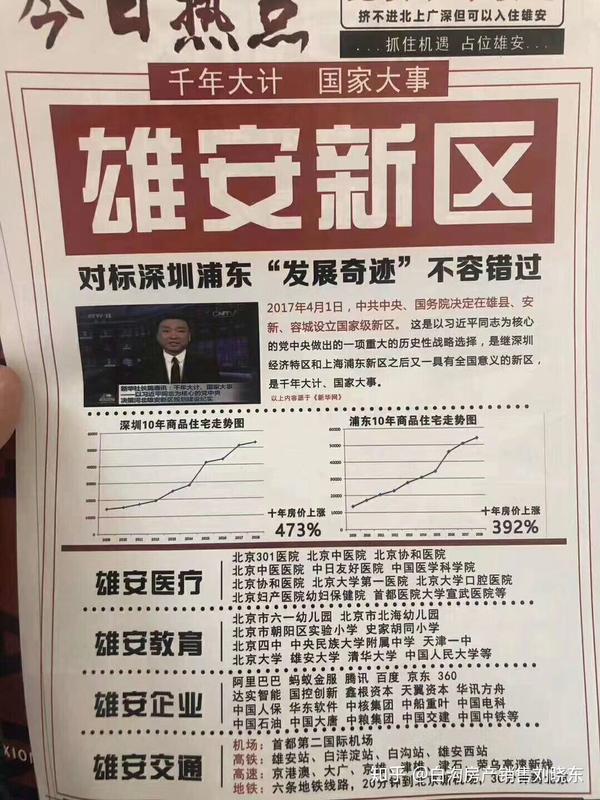 今日热点
挤不进北上广深但可以入住雄安
...抓住机遇 占位雄安...
千年大计 国家大事
雄安新区
对标深圳浦东“发展奇迹”不容错过
2017年4月1日，中共中央、国务院决定在雄县、安
新、容城设立国家级新区。这是以习近平同志为核心
的党中央做出的一项重大的历史性战略选择，是继深圳
经济特区和上海浦东新区之后又一具有全国意义的新区，
是千年大计、国家大事。
以上内容源于《新华网》
新华社长篇通讯：千年大计、国家大事
——以习近平同志为核心的党中央
决策河北雄安新区规划建设纪实
深圳10年商品住宅走势图
十年房价上涨
473%
浦东10年商品住宅走势图
十年房价上涨
392%
雄安医疗
北京301医院 北京中医院 北京协和医院
北京中医医院 中日友好医院 中国医学科学院
北京协和医院 北京大学第一医院 北京大学口腔医院
北京妇产医院幼妇保健院 首都医院大学宣武医院等
雄安教育
北京市六一幼儿园 北京市北海幼儿园
北京市朝阳区实验小学 史家胡同小学
北京四中 中央民族大学附属中学 天津一中
北京大学 雄安大学 清华大学 中国人民大学等
雄安企业
阿里巴巴 蚂蚁金服 腾讯 百度 京东 360
达实智能 国控创新 鑫根资本 天翼资本 华讯方舟
中国人保 华东软件 中核集团 中船重叶 中国电科
中国石油 中国大唐 中粮集团 中国交建 中国中铁等
雄安交通
机场：首都第二国际机场
高铁：雄安站、白洋淀站、白沟站、雄安西站
高速：京港澳、大广、京雄、津雄、津石、荣乌高速新线
地铁：六条地铁线路，20分钟到北京新机场，30分各达北京
知乎 @白沟房产销售刘晓东